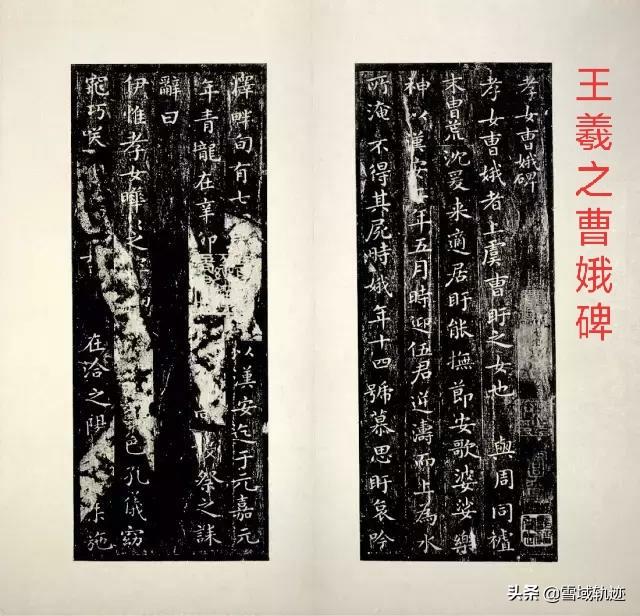 王羲之曹娥碑
孝女曹娥碑
孝女曹娥者上虞曹盱之女也 與周同
末胄荒沈爰来適居盱能撫節安歌婆娑樂
神以漢安年五月時迎伍君逆濤而上為水
所淹不得其屍時娥年十四號慕思盱哀吟
澤畔旬有七 以漢安迄于元嘉元
年青龍在辛卯 祭之誄
辭曰
伊惟孝女曄之 色孔儀窈
窕巧咲 在洽之阳 施
头条 @雪域轨迹